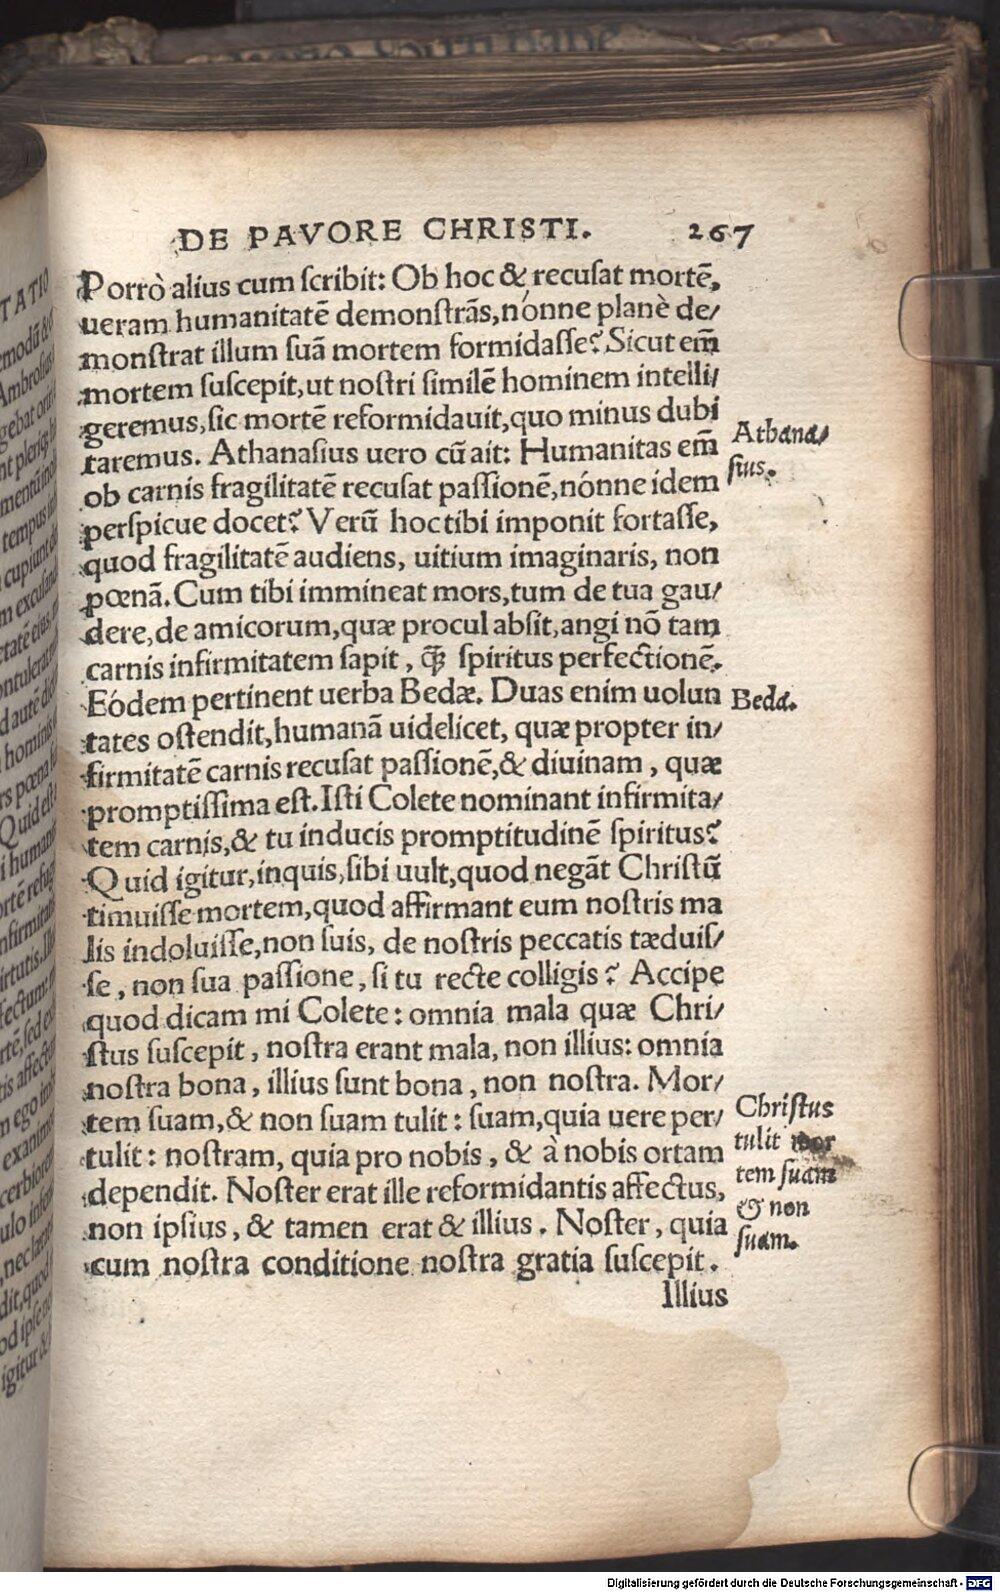 DE PAVORE CHRISTI. 267
Porrò alius cum scribit: Ob hoc & recusat mortē,
ueram humanitatē demonstrās, nónne planè de/
monstrat illum suā mortem formidasse? Sicut em̄
mortem suscepit, ut nostri similē hominem intelli/
geremus, sic mortē reformidauit, quo minus dubi
taremus. Athanasius uero cū ait: Humanitas em̄
ob carnis fragilitatē recusat passionē, nónne idem
perspicue docet? Verū hoc tibi imponit fortasse,
quod fragilitatē audiens, uitium imaginaris, non
pœnā. Cum tibi immineat mors, tum de tua gau/
dere, de amicorum, quæ procul absit, angi nō tam
carnis infirmitatem sapit, q̄ȝ spiritus perfectionē.
Eódem pertinent uerba Bedæ. Duas enim uolun
tates ostendit, humanā uidelicet, quæ propter in/
firmitatē carnis recusat passionē, & diuinam, quæ
promptissima est. Isti Colete nominant infirmita/
tem carnis, & tu inducis promptitudinē spiritus?
Quid igitur, inquis, sibi uult, quod negāt Christū
timuisse mortem, quod affirmant eum nostris ma
lis indoluisse, non suis, de nostris peccatis tæduis/
se, non sua passione, si tu recte colligis? Accipe
quod dicam mi Colete: omnia mala quæ Chri/
stus suscepit, nostra erant mala, non illius: omnia
nostra bona, illius sunt bona, non nostra. Mor/
tem suam, & non suam tulit: suam, quia uere per/
tulit: nostram, quia pro nobis, & à nobis ortam
dependit. Noster erat ille reformidantis affectus,
non ipsius, & tamen erat & illius. Noster, quia
cum nostra conditione nostra gratia suscepit.
Illius
Athana/
sius.
Beda.
Christus
tulit mor
tem suam
& non
suam.
Digitalisierung gefördert durch die Deutsche Forschungsgemeinschaft - DFG